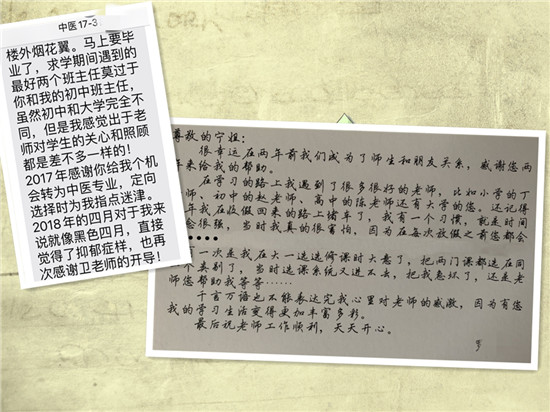 中医17-3
楼外烟花翼。马上要毕
业了，求学期间遇到的
最好两个班主任莫过于
你和我的初中班主任，
虽然初中和大学完全不
同，但是我感觉出于老
师对学生的关心和照顾
都是差不多一样的！
2017年感谢你给我个机
会转为中医专业，定向
选择时为我指点迷津。
2018年的四月对于我来
说就像黑色四月，直接
觉得了抑郁症样，也再
次感谢卫老师的开导！
尊敬的宁姐：
很幸运在两年前我们成为了师生和朋友关系，感谢您两
年来给我的帮助。
在学习的路上我遇到了很多很好的老师，比如小学的丁
师、初中的赵老师、高中的陈老师还有大学的您。还记得
年我在收假回来的路上堵车了，我有一个习惯，就是时间
念很强，当时我真的很害怕，因为在每次放假之前您都会
●●●●●
一次是我在大一选选修课时大意了，把两门课都选在同
个类别了，当时选课系统又进不去，把我急坏了，还是老
师您帮助我等等……
千言万语也不能表达完我心里对老师的感激，因为有您
我的学习生活变得更加丰富多彩。
最后祝老师工作顺利，天天开心。